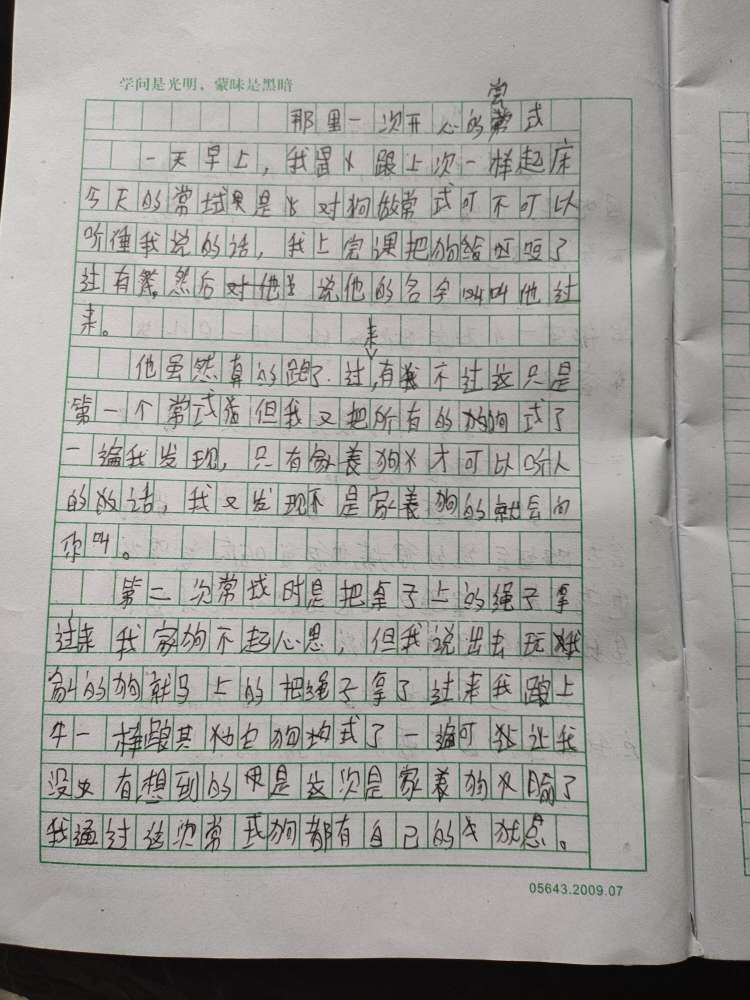 学问是光明，蒙昧是黑暗
尝
那里一次开心的常式
一天早上，我是跟上次一样起床
今天的常域是对狗做常式可不可以
听懂我说的话，我上完课把狗给逗了
过有然后对他说他的名字叫他过
来。
来
他虽然真的跑了过，有不过这只是
第一个常式但我又把所有的狗狗式了
一编我发现，只有家养狗才可以听人
的话，我又发现不是家养狗的就会向
你叫。
第二次常域时是把桌子上的绳子拿
过来我家狗不起心思，但我说出去玩我
家的狗就马上的把绳子拿了过来我跟上
午一样跟其他狗式了一编可让我
没有想到的是这次是家养狗输了
我通过这次常式狗都有自己的点。
05643.2009.07